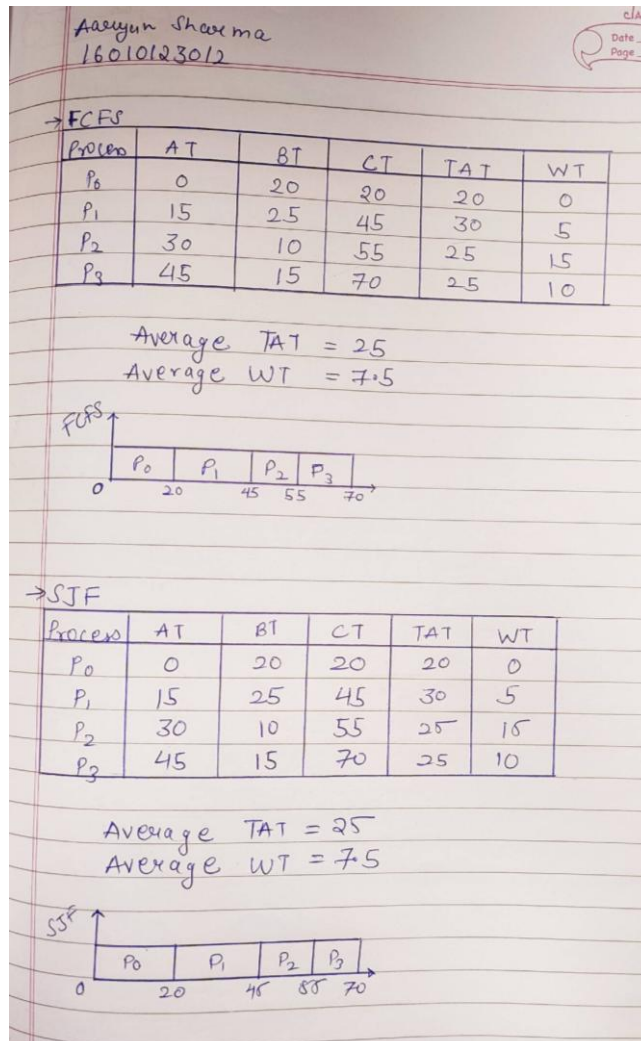 Aaryan Sharma
16010123012
Date
Page
→ FCFS
Process AT BT CT TAT WT
P0 0 20 20 20 0
P1 15 25 45 30 5
P2 30 10 55 25 15
P3 45 15 70 25 10
Average TAT = 25
Average WT = 7.5
FCFS
P0 P1 P2 P3
0 20 45 55 70
→ SJF
Process AT BT CT TAT WT
P0 0 20 20 20 0
P1 15 25 45 30 5
P2 30 10 55 25 15
P3 45 15 70 25 10
Average TAT = 25
Average WT = 7.5
SJF
P0 P1 P2 P3
0 20 45 55 70